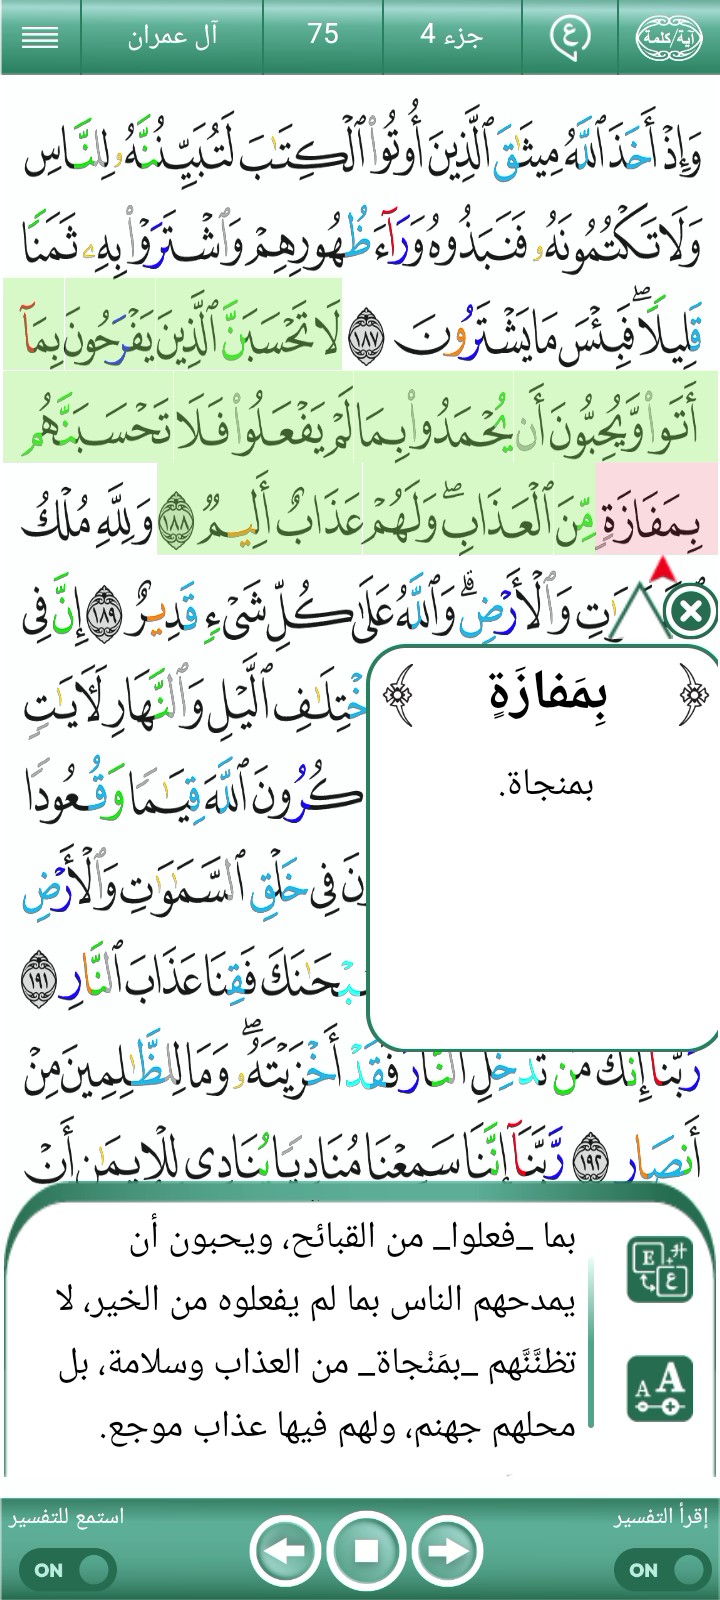 آية/كلمة ع جزء 4 75 آل عمران
وَإِذْ أَخَذَ ٱللَّهُ مِيثَٰقَ ٱلَّذِينَ أُوتُوا۟ ٱلْكِتَٰبَ لَتُبَيِّنُنَّهُۥ لِلنَّاسِ
وَلَا تَكْتُمُونَهُۥ فَنَبَذُوهُ وَرَآءَ ظُهُورِهِمْ وَٱشْتَرَوْا۟ بِهِۦ ثَمَنًا
قَلِيلًا ۖ فَبِئْسَ مَا يَشْتَرُونَ ١٨٧ لَا تَحْسَبَنَّ ٱلَّذِينَ يَفْرَحُونَ بِمَآ
أَتَوا۟ وَّيُحِبُّونَ أَن يُحْمَدُوا۟ بِمَا لَمْ يَفْعَلُوا۟ فَلَا تَحْسَبَنَّهُم
بِمَفَازَةٍ مِّنَ ٱلْعَذَابِ ۖ وَلَهُمْ عَذَابٌ أَلِيمٌ ١٨٨ وَلِلَّهِ مُلْكُ
وَٱلْأَرْضِ ۗ وَٱللَّهُ عَلَىٰ كُلِّ شَىْءٍ قَدِيرٌ ١٨٩ إِنَّ فِى
ٱلَّيْلِ وَٱلنَّهَارِ لَـَٔايَٰتٍ
ٱللَّهَ قِيَٰمًا وَقُعُودًا
فِى خَلْقِ ٱلسَّمَٰوَٰتِ وَٱلْأَرْضِ
فَقِنَا عَذَابَ ٱلنَّارِ ١٩١
رَبَّنَآ إِنَّكَ مَن تُدْخِلِ ٱلنَّارَ فَقَدْ أَخْزَيْتَهُۥ ۖ وَمَا لِلظَّٰلِمِينَ مِنْ
أَنصَارٍ ١٩٢ رَّبَّنَآ إِنَّنَا سَمِعْنَا مُنَادِيًا يُنَادِى لِلْإِيمَٰنِ أَنْ
بِمَفازَةٍ
بمنجاة.
بما _فعلوا_ من القبائح، ويحبون أن
يمدحهم الناس بما لم يفعلوه من الخير، لا
تظنَّنَّهم _بمَنْجاة_ من العذاب وسلامة، بل
محلهم جهنم، ولهم فيها عذاب موجع.
إقرأ التفسير استمع للتفسير
ON ON